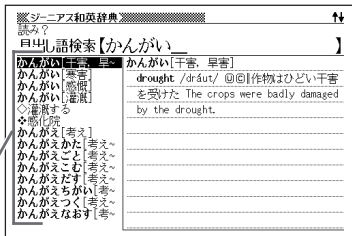 ジーニアス和英辞典
読み？
見出し語検索【かんがい＿ 】
かんがい[干害, 早~
かんがい[寒害]
かんがい[感慨]
かんがい[灌漑]
◇灌漑する
❖感化院
かんがえ[考え]
かんがえかた[考え~
かんがえごと[考え~
かんがえこむ[考え~
かんがえだす[考え~
かんがえちがい[考~
かんがえつく[考え~
かんがえなおす[考~
かんがい[干害, 早害]
drought /dráut/ ⓊⒸ∥作物はひどい干害
を受けた The crops were badly damaged
by the drought.